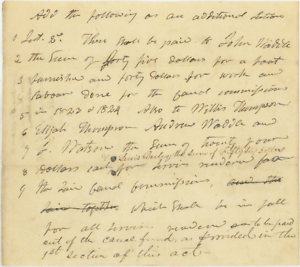 Add the following as an additional section
1 Sect. 5. There shall be paid to John Waddle
2 the Sum of forty five dollars for a boat
3 furnished and forty dollars for work and
4 labour done for the canal commissioners
5 in 1823 & 1824 Also to Willis Thompson
6 Elijah Thompson Andrew Waddle and
7 J. Watson the Sum of twenty four
to Lewis the Sum of
8 dollars each for services rendered
9 the said canal commissioners,
which shall be in full
for all services rendered to be paid
out of the canal fund, as provided in the
1st section of this act